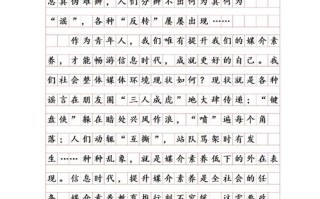 息真伪难辨，人们分辨不出何为真何为
“谣”，各种“反转”屡屡出现……
作为青年人，我们唯有提升我们的媒介素
养，才能畅游信息时代，成就更好的自己。我
们社会整体媒体环境现状如何？现状就是各种
谣言在朋友圈“三人成虎”地大肆传递；“键
盘侠”躲在暗处兴风作浪，“喷”遍每个角
落；人们动辄“互撕”，站队骂架时有发
生……种种乱象，就是媒介素养低下的外在表
现。信息时代，提升媒介素养是全社会的任
务，媒介素养教育推行刻不容缓。这需要改